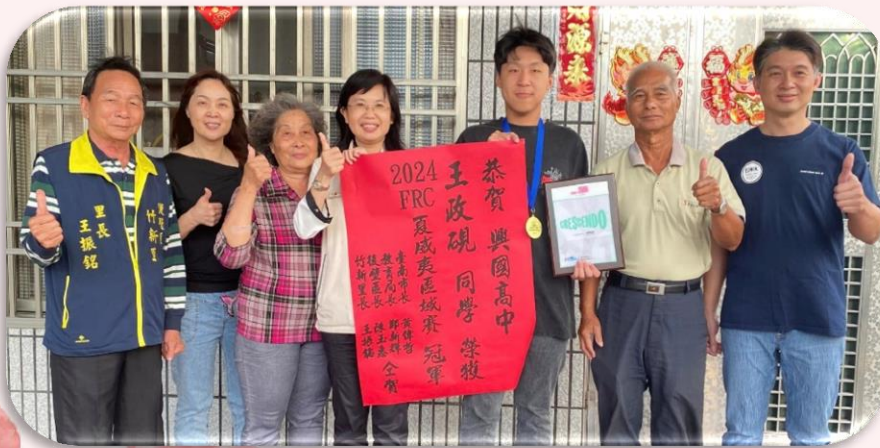 恭賀 興國高中
王政硯 同學 榮獲
2024
FRC
夏威夷區域賽 冠軍
臺南市長 黃偉哲
教育局長 鄭新輝
後壁區長
竹新里長 王振銘
仝賀
竹新里
里長
王振銘
CRESCENDO
來
福